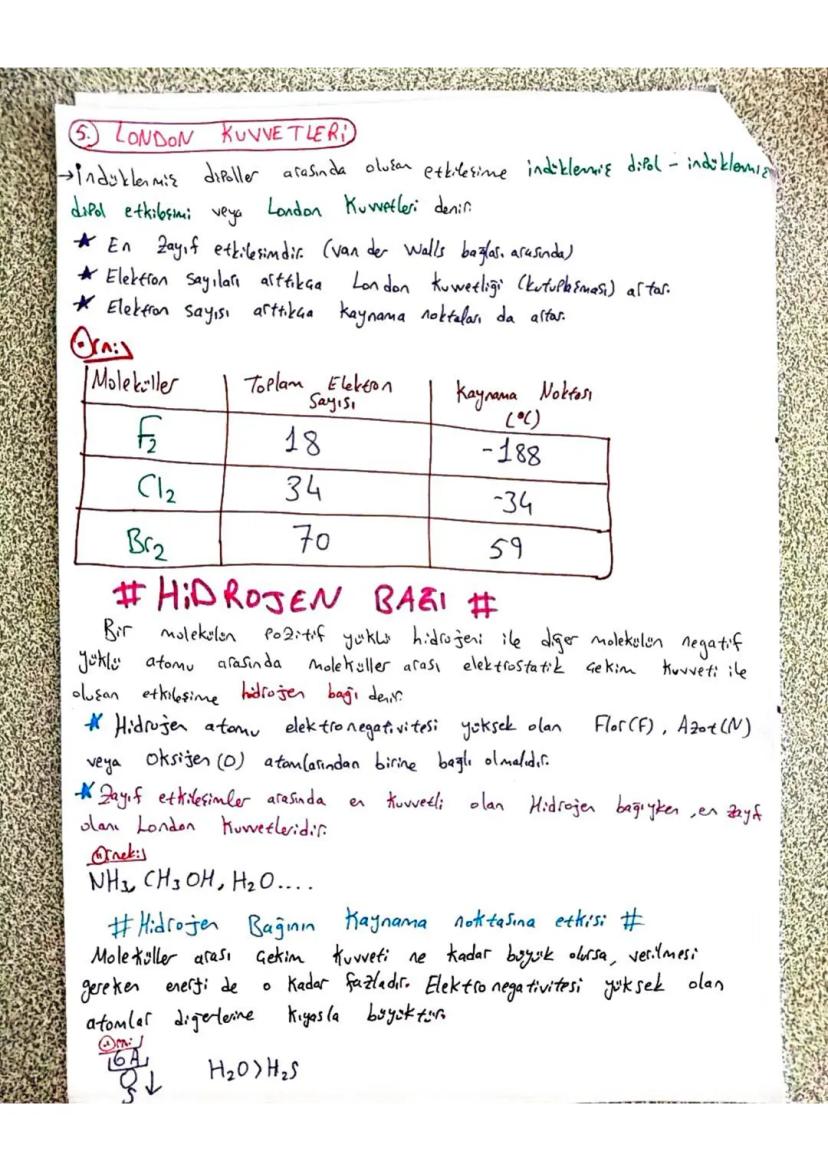 5. LONDON KUVVETLERİ
→İndüklenmiş dipoller arasında oluşan etkileşime indüklenmiş dipol - indüklenmiş
dipol etkileşimi veya London Kuvvetleri denir.
★ En Zayıf etkileşimdir. (Van der Walls bağları arasında)
★ Elektron sayıları arttıkça London kuvvetliği (kutuplaşması) artar.
★ Elektron sayısı arttıkça kaynama noktaları da artar.
Örn:
Moleküller Toplam Elektron Sayısı Kaynama Noktası (°C)
F2 18 -188
Cl2 34 -34
Br2 70 59
# HİDROJEN BAĞI #
Bir molekülün Pozitif yüklü hidrojeni ile diğer molekülün negatif
yüklü atomu arasında moleküller arası elektrostatik Çekim Kuvveti ile
oluşan etkileşime hidrojen bağı denir.
★ Hidrojen atomu elektronegativitesi yüksek olan Flor(F), Azot(N)
veya Oksijen (O) atomlarından birine bağlı olmalıdır.
★ Zayıf etkileşimler arasında en kuvvetli olan Hidrojen bağıyken, en zayıf
olanı London Kuvvetleridir.
Örnek:
NH3, CH3OH, H2O....
# Hidrojen Bağının Kaynama noktasına etkisi #
Moleküller arası Çekim Kuvveti ne kadar büyük olursa, verilmesi
gereken enerji de o kadar fazladır. Elektronegativitesi yüksek olan
atomlar diğerlerine kıyasla büyüktür.
Örn:
6A
O ↓ H2O>H2S
S